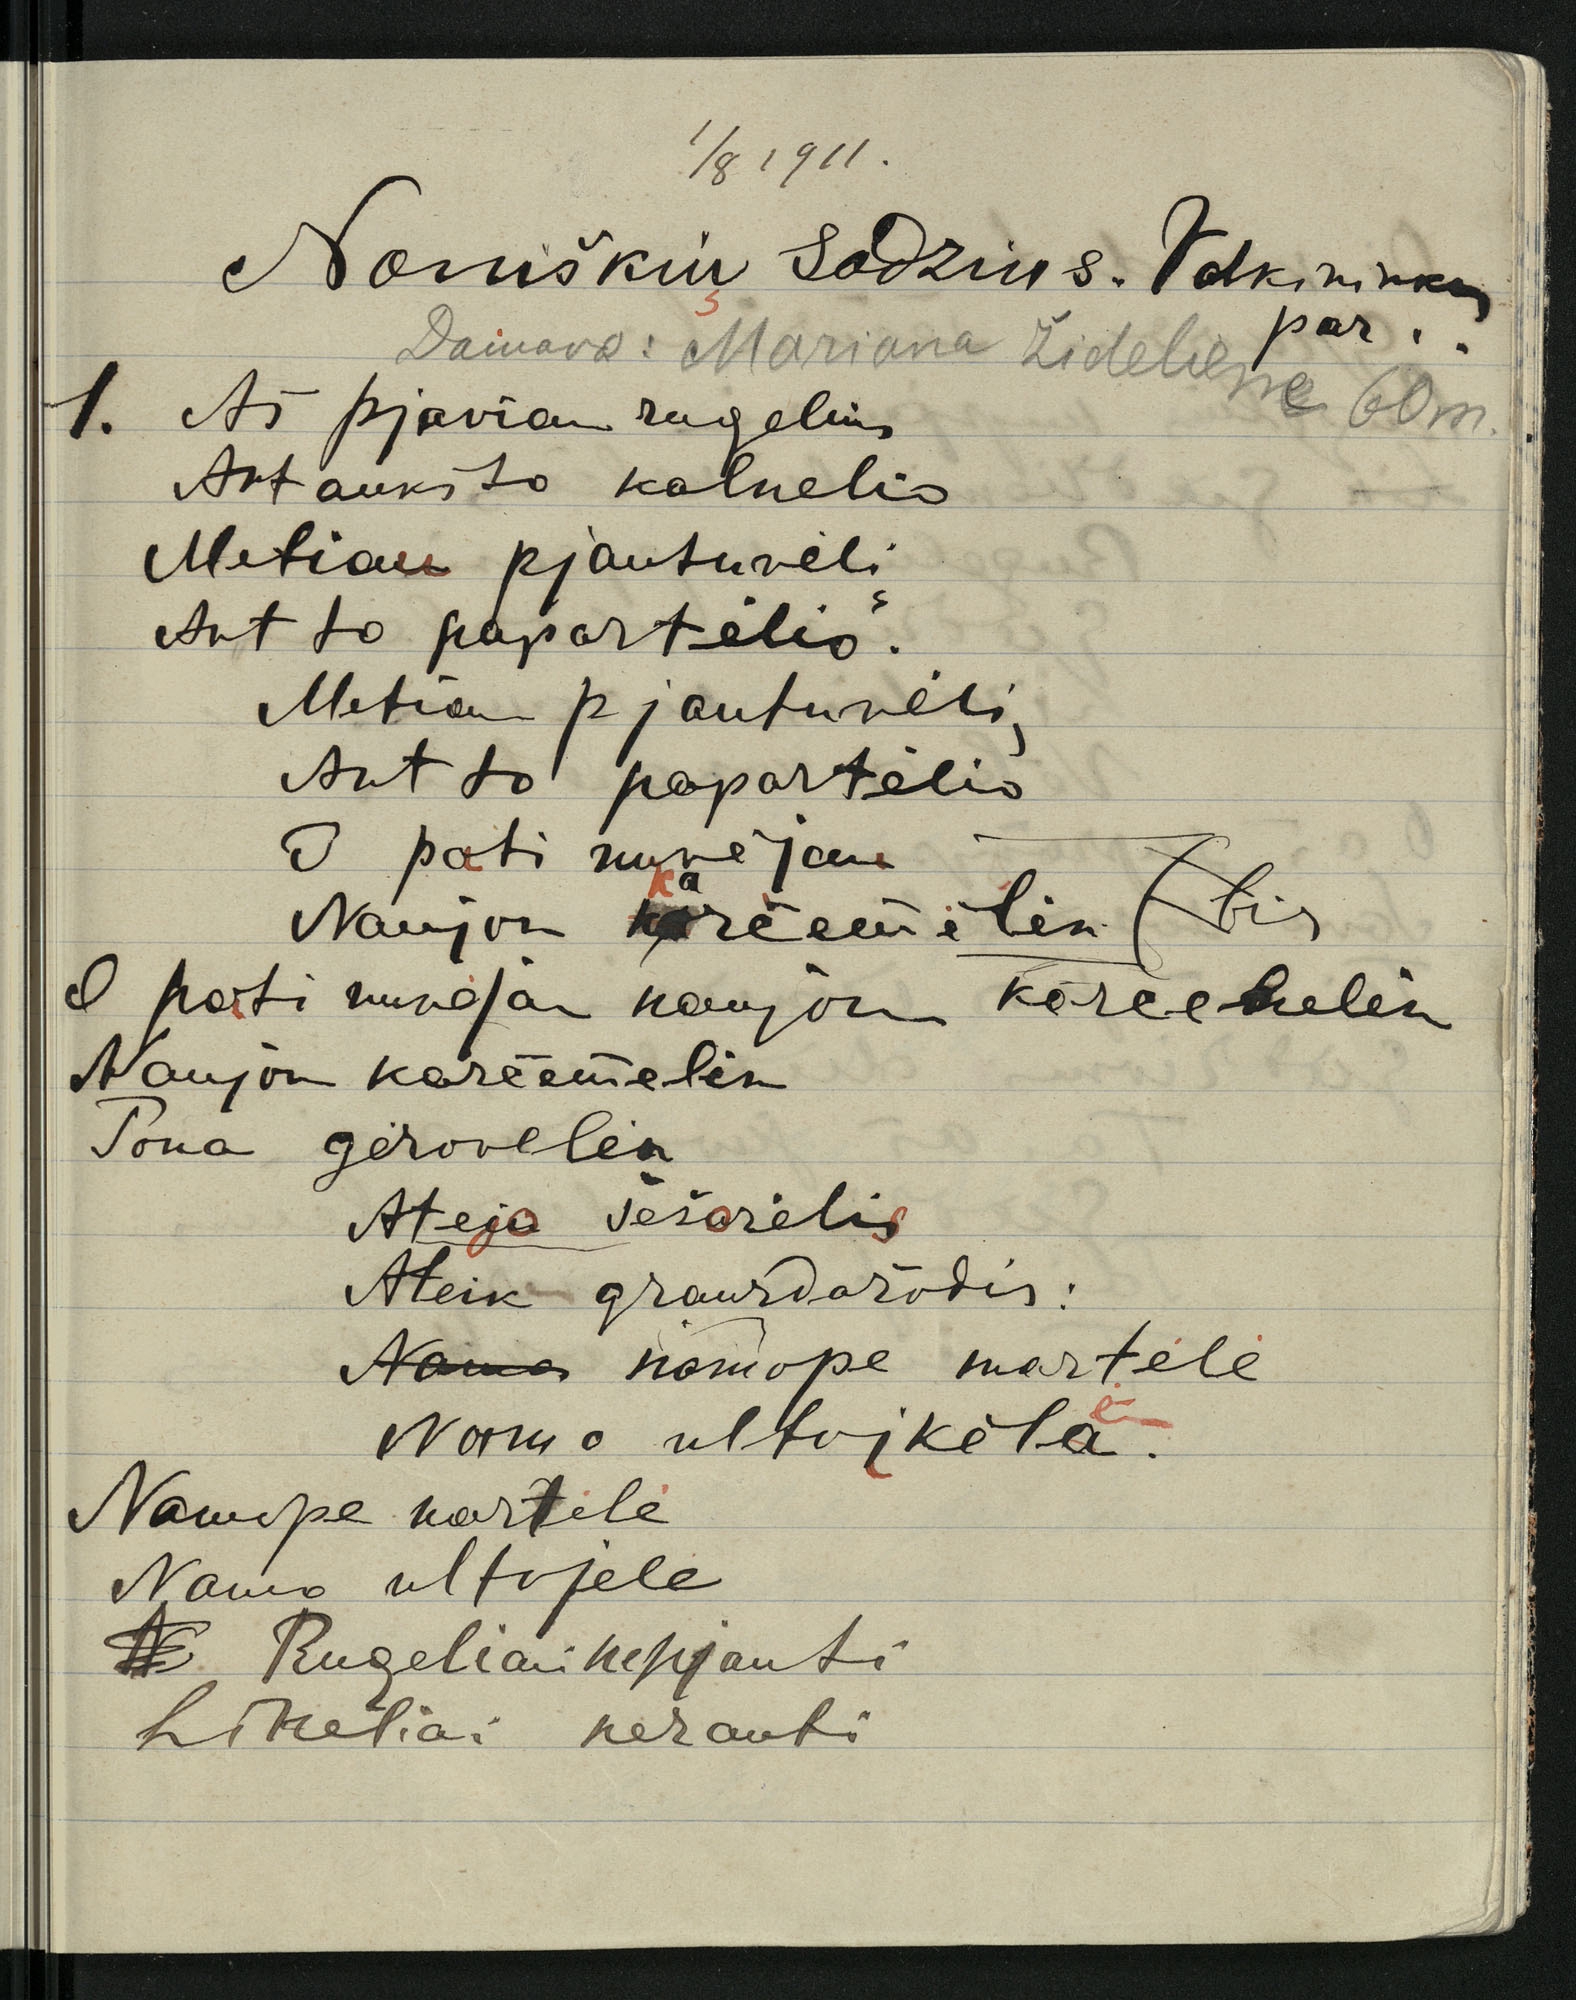 1/8 1911.
Noniškių Sodžius. Valkininkų
par.
Dainavo: Mariana Židelienė 60 m.
1. Aš pjaviau rugelius
Ant aukšto kalnelio
Metiau pjautuvėlį
Ant to papartėlio.
Metiau pjautuvėlį
Ant to papartėlio
I pati nuvėjau
Naujon karčemėlėn (bis
I pati nuvėjau naujon karčemelėn
Naujon karčemelėn
Pona gėrovelėn
Ateja šešorėlis
Ateik graurdažodis:
namope martėlė
Namo ultojkėla.
Namope martėlė
Namo ultojele
Rugeliai nepjauti
Likeliai nerauti